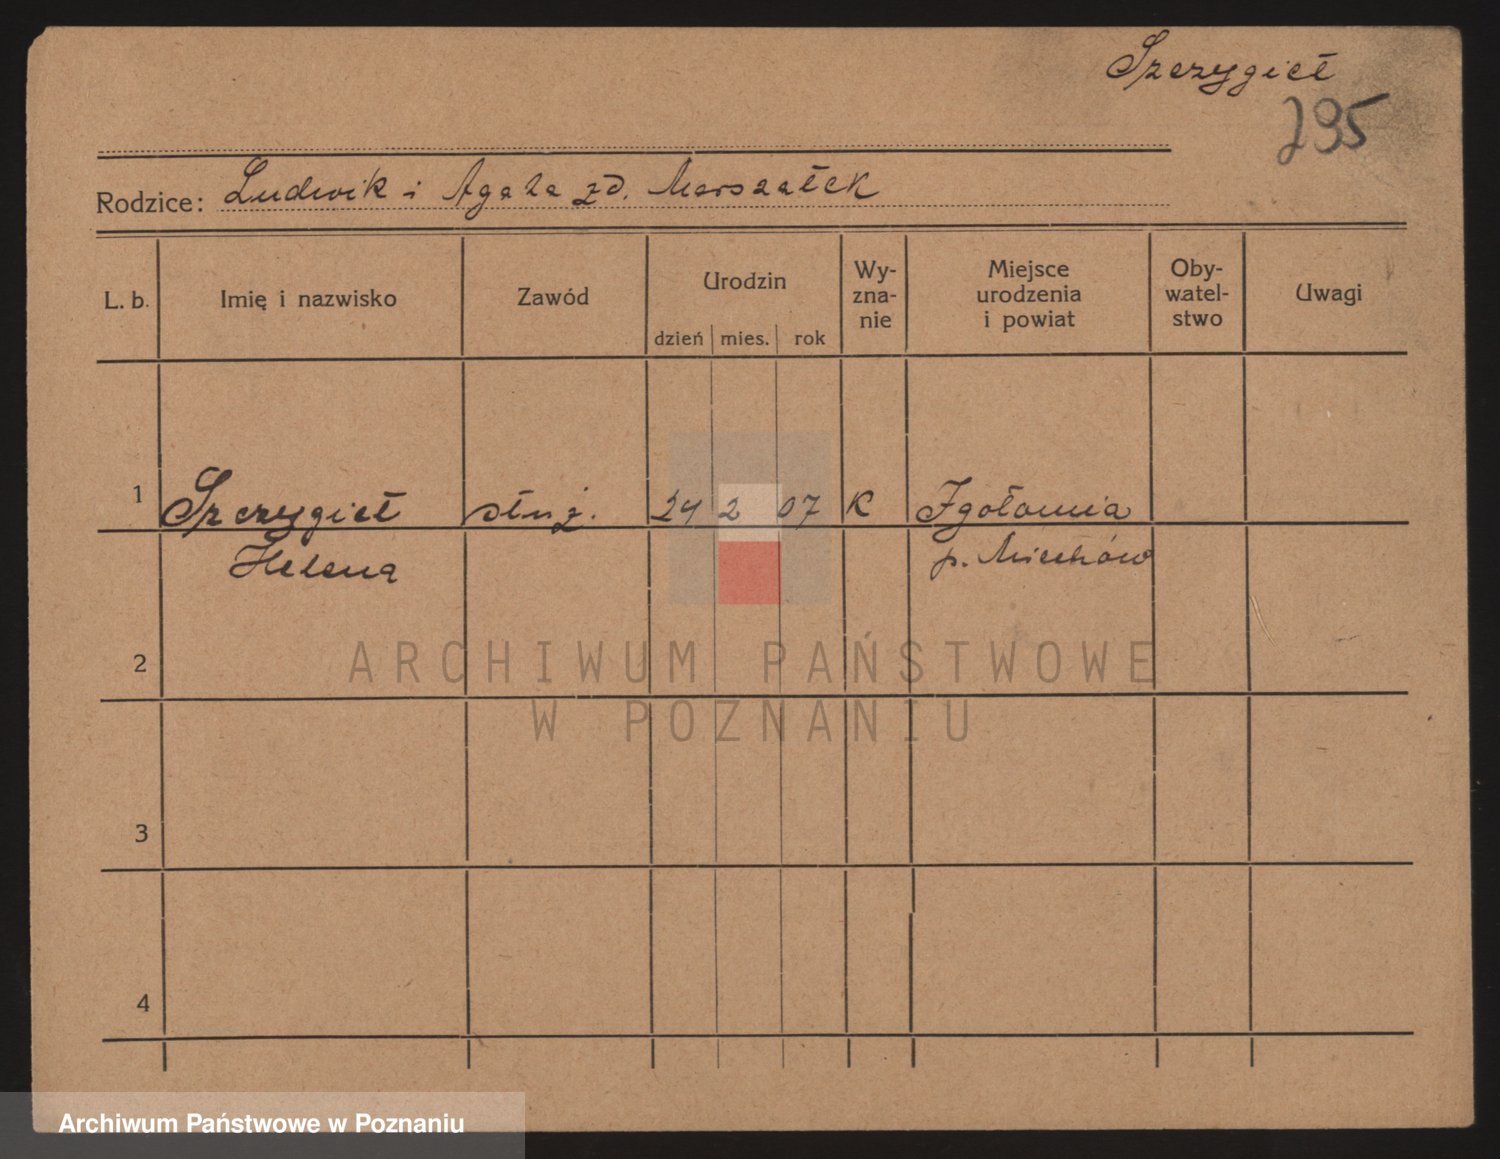 Szczygieł
295
Rodzice: Ludwik i Agata zd. Marszałek
L. b.
Imię i nazwisko
Zawód
Urodzin
dzień mies. rok
Wy-
zna-
nie
Miejsce
urodzenia
i powiat
Oby-
watel-
stwo
Uwagi
1 Szczygieł służ. 24 2 07 K Igołomia
Helena p. Miechów
2
3
4
ARCHIWUM PAŃSTWOWE
W POZNANIU
Archiwum Państwowe w Poznaniu